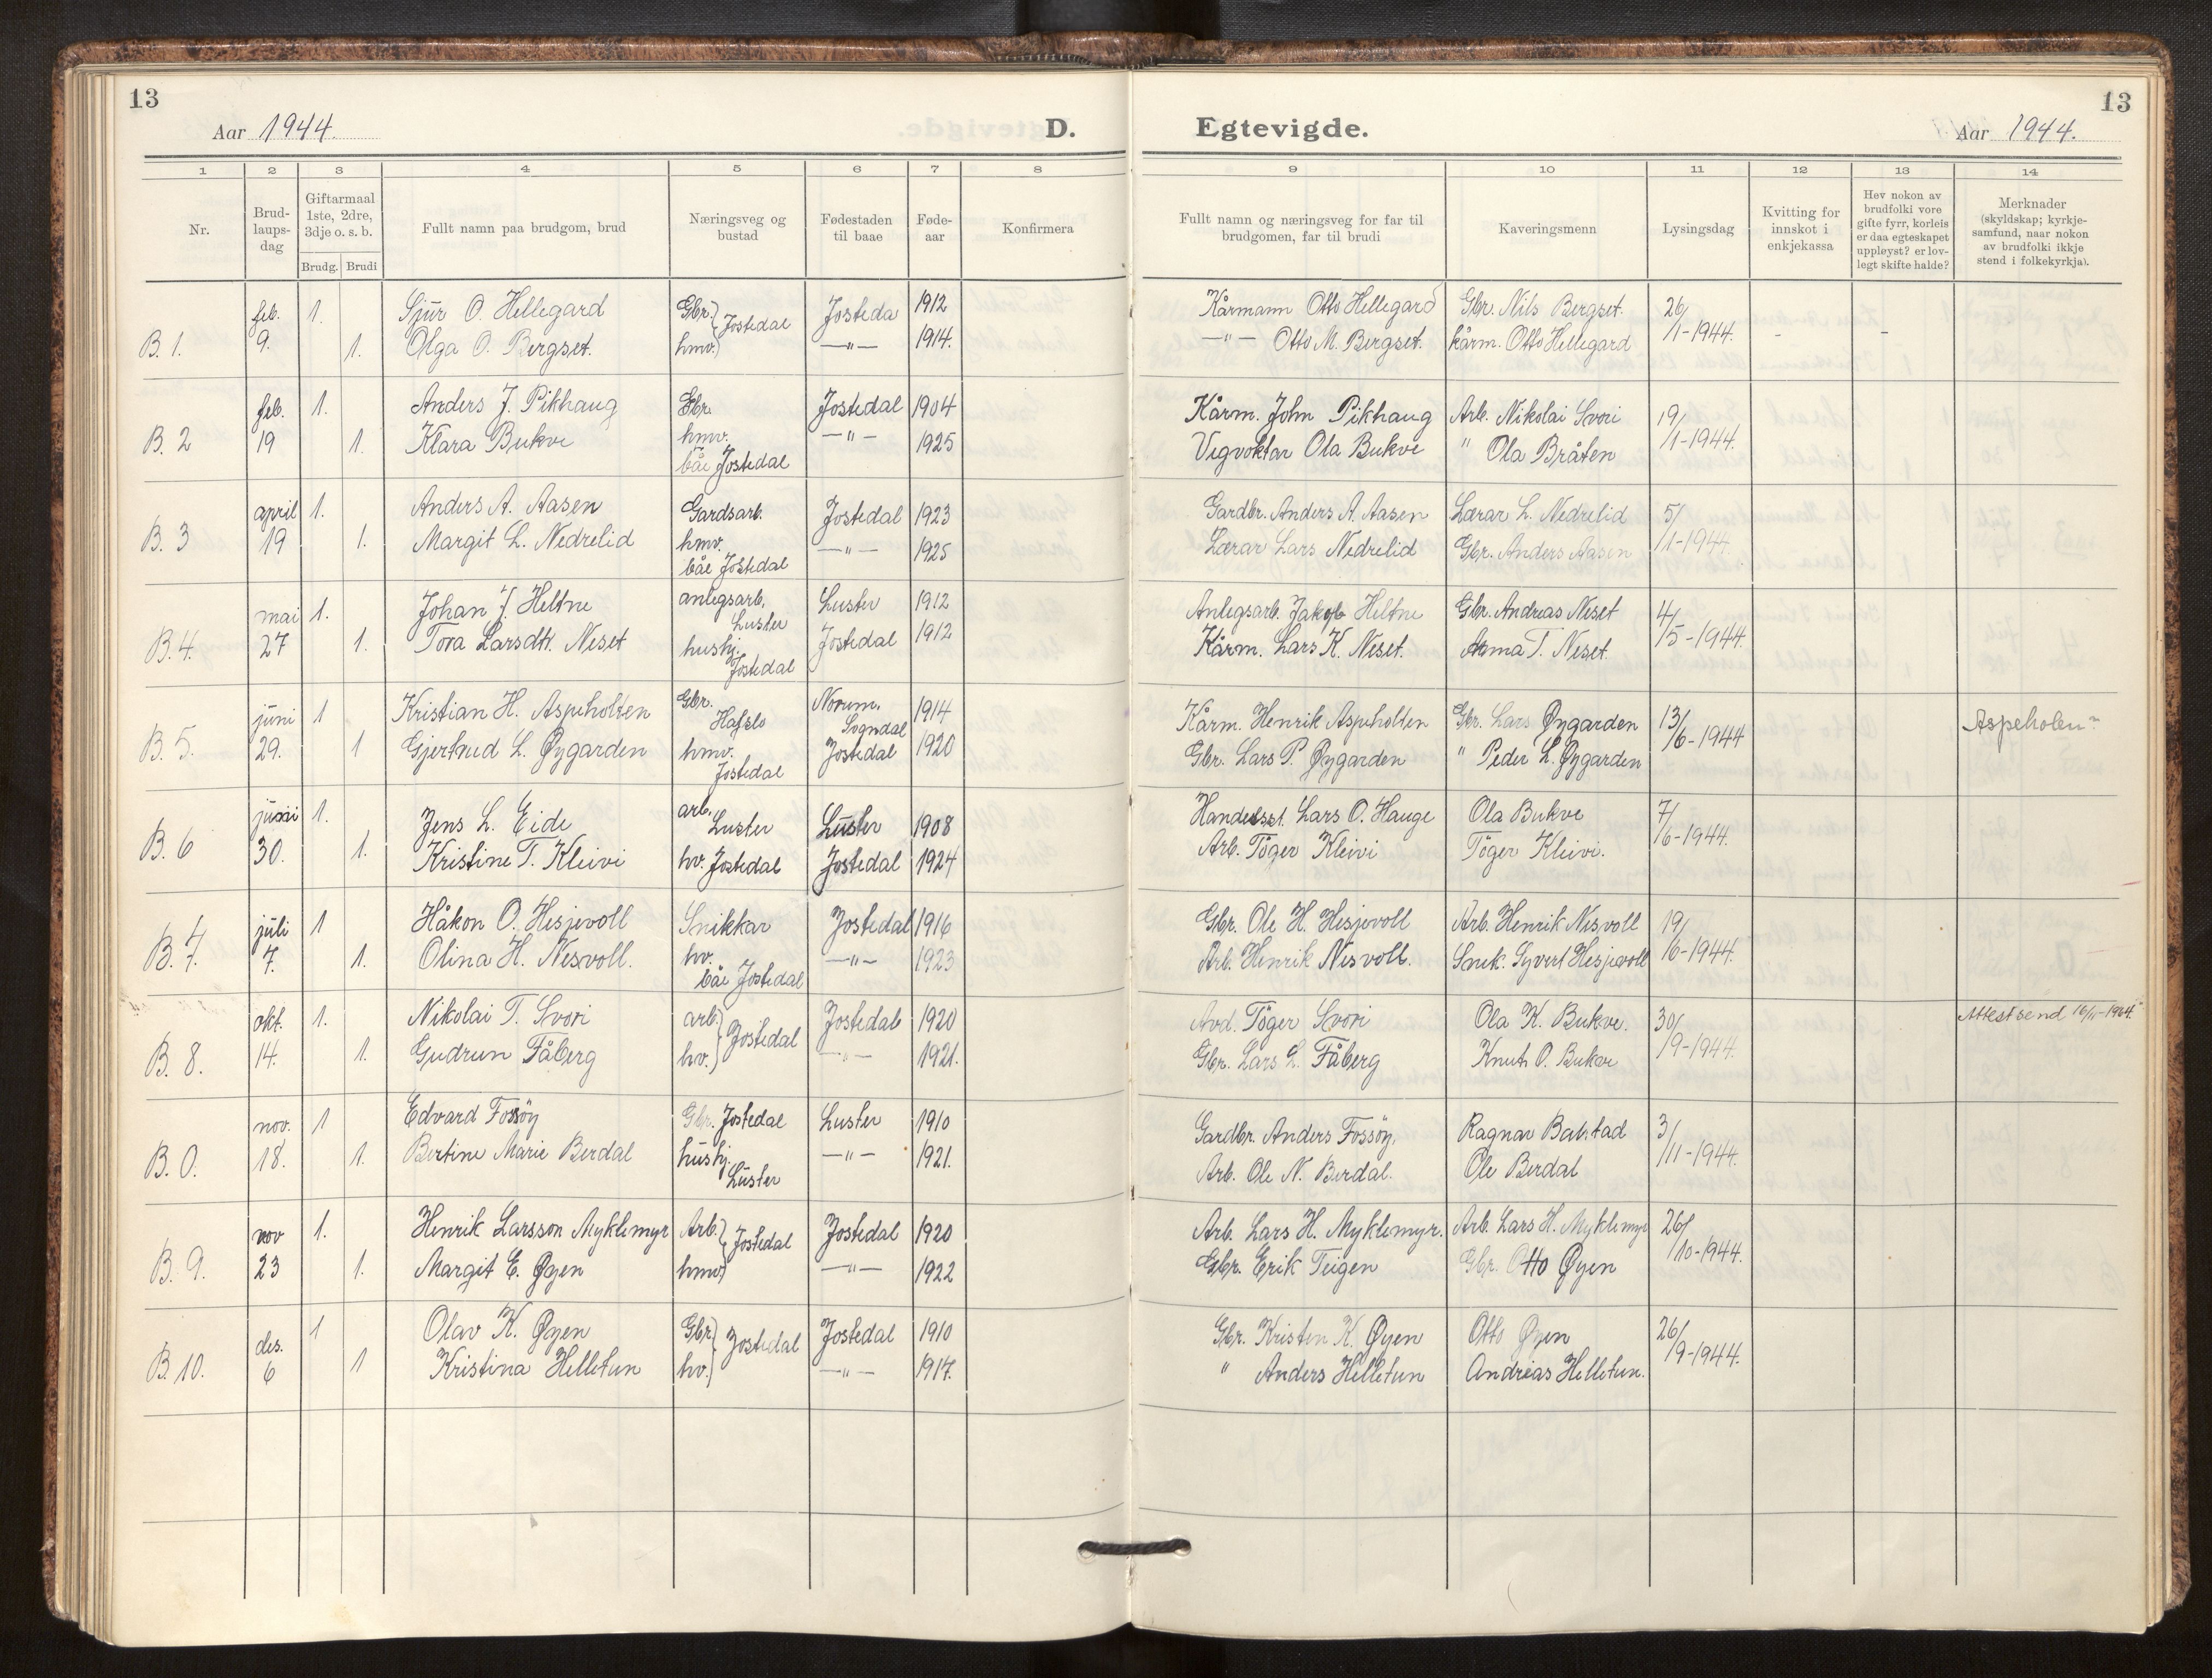 13
Aar 1944.
D.
Egtevigde.
Aar 1944.
13
1 2 3 4 5 6 7 8 9 10 11 12 13 14
Nr.
Brud-
laups-
dag
Giftarmaal
1ste, 2dre,
3dje o. s. b.
Brudg. Brudi
Fullt namn paa brudgom, brud
Næringsveg og
bustad
Fødestaden
til baae
Føde-
aar
Konfirmera
Fullt namn og næringsveg for far til
brudgomen, far til brudi
Kaveringsmenn
Lysingsdag
Kvitting for
innskot i
enkjekassa
Hev nokon av
brudfolki vore
gifte fyrr, korleis
er daa egteskapet
uppløyst? er lov-
legt skifte halde?
Merknader
(skyldskap; kyrkje-
samfund, naar nokon
av brudfolki ikkje
stend i folkekyrkja).
feb. 1. Sjur O. Hellegard Gbr. } Jostedal Josteda 1912 Kårmann Otto Hellegard Gbr. Nils Bergset. 26/
B. 1. 9. 1. Olga O. Bergset. hmv. —"— 1914. —"— Otto M. Bergset. kårm. Otto Hellegard /1-1944. - -
feb. 1. Anders J. Pikhaug Gbr. Jostedal 1904 Kårm. John Pikhaug Arb. Nikolai Svori 19/
B. 2 19 1. Klara Bukve hmv. —"— 1925 Vegvoktar Ola Bukve " Ola Bråten /1-1944.
båe Jostedal
april 1. Anders A. Aasen Gardsarb. Jostedal 1923 Gardbr. Anders A. Aasen Lærar L. Nedrelid 5/
B. 3 19 1. Margit L. Nedrelid hmv. —"— 1925 Lærar Lars Nedrelid Gbr. Anders Aasen /1-1944.
båe Jostedal
mai 1. Johan J. Heltne anlegsarb. Luster 1912 Anlegsarb. Jakob Heltne Gbr. Andreas Neset 4/
Luster
B. 4. 27 1. Tora Larsdtr. Neset hushj. Jostedal 1912 Kårm. Lars K. Neset. Anna T. Neset /5-1944.
Jostedal
juni 1 Kristian H. Aspeholten Gbr. Norum, 1914 Kårm. Henrik Aspeholten Gbr. Lars Øygarden 13/ Aspeholen?
Hafslo Sogndal
B. 5. 29. 1 Gjertrud L. Øygarden hmv. Jostedal 1920 Gbr. Lars P. Øygarden " Peder L. Øygarden /6-1944
Jostedal
juni 1. Jens L. Eide arb. Luster Luster 1908 Handelsst. Lars O. Hauge Ola Bukve 7/
B. 6 30. 1. Kristine T. Kleivi hv. Jostedal Jostedal 1924 Arb. Töger Kleivi Töger Kleivi. /6-1944.
juli 1 Håkon O. Hesjevoll Snikkar Jostedal 1916 Gbr. Ole H. Hesjevoll Arb. Henrik Nesvoll 19/
B. 7. 7. 1. Olina H. Nesvoll. hv. —"— 1923 Arb. Henrik Nesvoll. Snik. Syvert Hesjevoll /6-1944.
båe Jostedal
okt. 1. Nikolai T. Svori arb. } Jostedal Jostedal 1920 Töger Svori Ola K. Bukve. 30/ Attest send 16/11-1964.
B. 8. 14. 1. Gudrun Fåberg hv. —"— 1921. Gbr. Lars L. Fåberg Knut O. Bukve /9-1944.
nov. 1 Edvard Fossöy Gbr. Jostedal Luster 1910 Gardbr. Anders Fossöy. Ragnar 3/
B. 0. 18. 1. Bertine Marie Berdal hushj. —"— 1921. Arb. Ole N. Berdal. Ole Berdal /11-1944.
Luster
nov 1. Henrik Larsson Myklemyr Arb. } Jostedal Jostedal 1920 Arb. Lars H. Myklemyr. Arb. Lars H. Myklemyr 26/
B. 9. 23 1. Margit E. Øyen hmv. —"— 1922 Gbr. Erik Teigen Gbr. Otto Øyen /10-1944.
des. 1 Olav K. Øyen Gbr } Jostedal Jostedal 1910 Gbr. Kristen K. Øyen Otto Øyen 26/
B. 10. 6 1 Kristina Helletun hv. —"— 1917. " Anders Helletun Andreas Helletun. /9-1944.